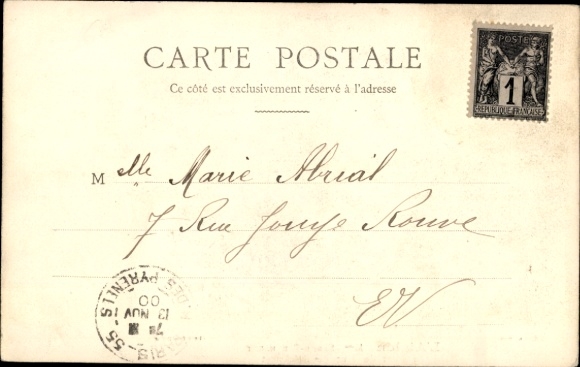 CARTE POSTALE
Ce côté est exclusivement réservé à l'adresse
POSTE
1
REPUBLIQUE FRANÇAISE
Mlle Marie Abrial
7 Rue Jouye Rouve
EV
PARIS - 55
DES PYRENEES
7E
13 NOV
00